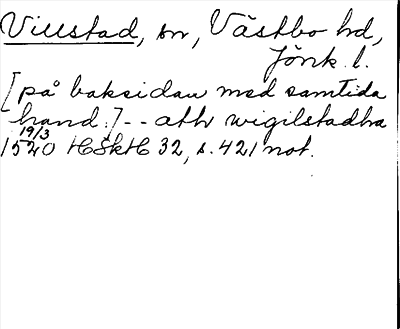 Villstad, sn, Västbo hd,
Jönk. l.
[på baksidan med samtida
hand:] -- ath wigilstadha
19/3
1520 HSkH 32, s. 421 not.